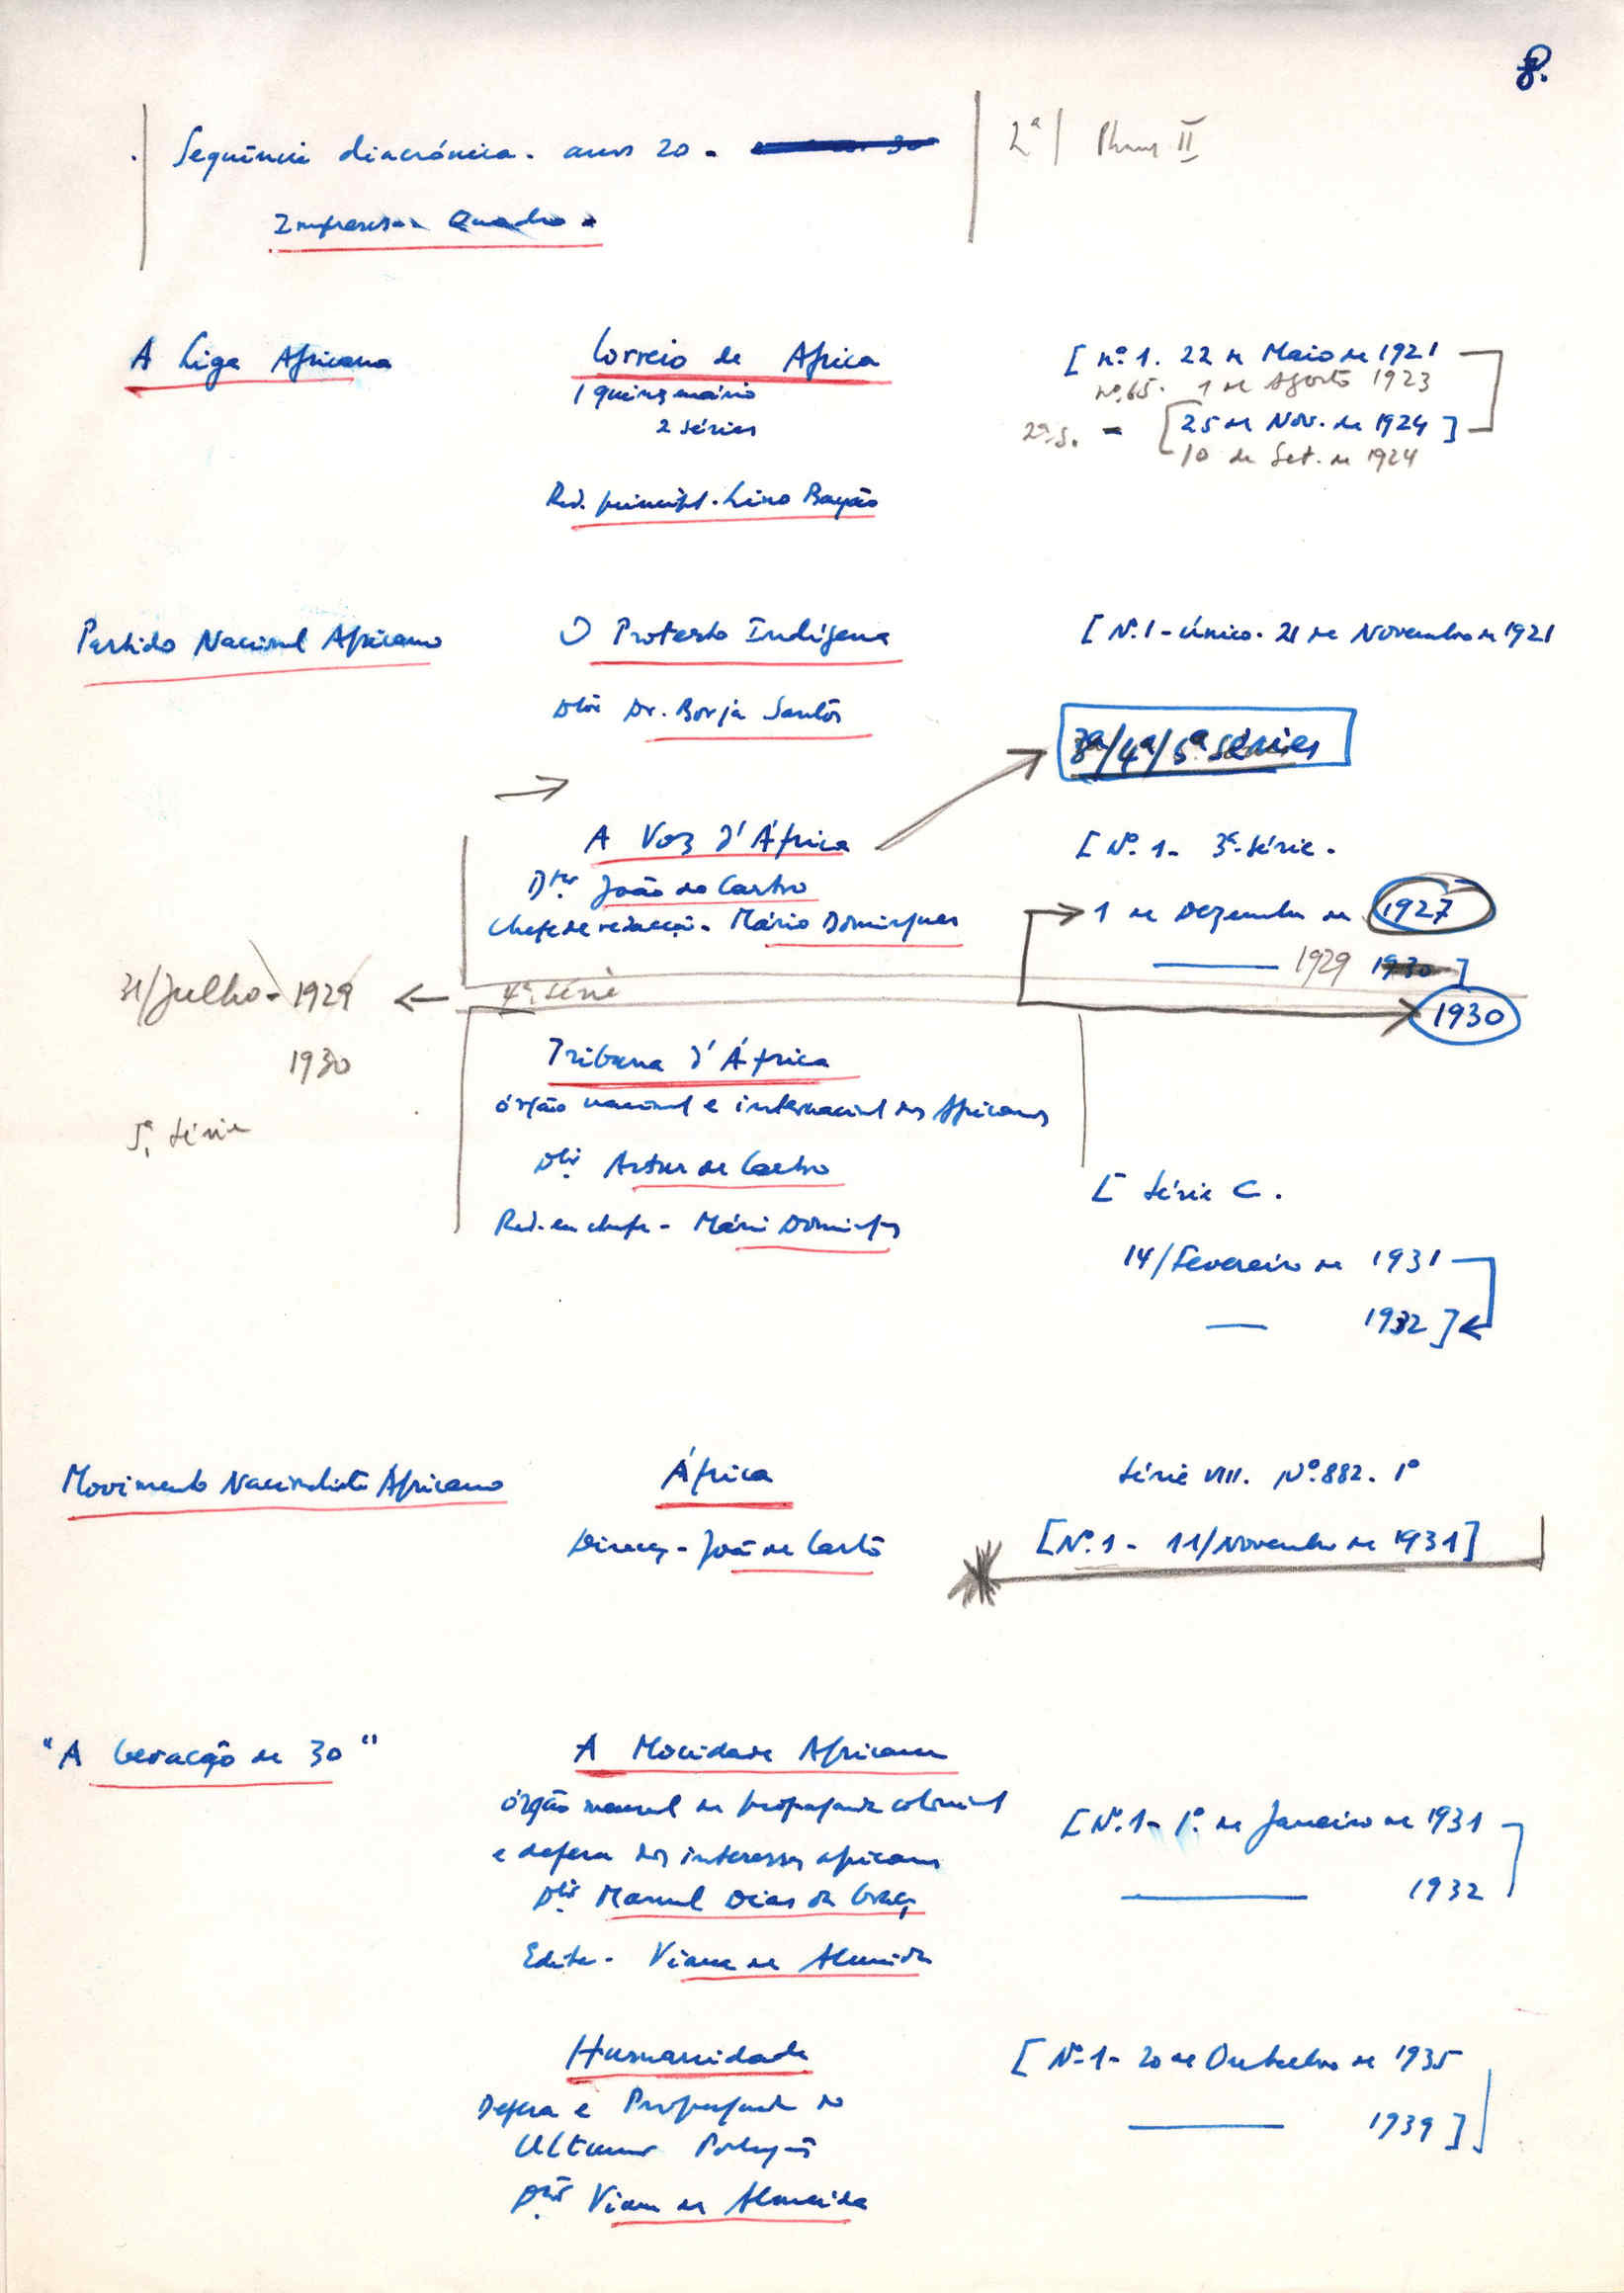 8.
Sequência diacrónica. anos 20 -
2ª/ II
Impressos Quadro
A Liga Africana
Correio de Africa
[ nº 1. 22 de Maio de 1921
1 quinzenário
nº 65. 1 de Agosto 1923
2 séries
2ª s. - [25 de Nov. de 1924]
10 de Set. de 1924
Red. principal. Lino Bayão
Partido Nacional Africano
O Protesto Indígena
[ Nº 1 - único. 21 de Novembro de 1921
Dtor Dr. Borja Santos
3ª/4ª/5ª séries
A Voz d'África
[ Nº 1 - 3ª série.
Dtor João de Castro
Chefe de redacção - Mário Domingues
1 de Dezembro de 1927
1929 1930 ]
31/Julho - 1929
4ª série
1930
1930
Tribuna d'África
órgão nacional e internacional dos Africanos
5ª série
Dtor Artur de Castro
[ Série C.
Red. em chefe - Mário Domingues
14/Fevereiro de 1931
1932 ]
Movimento Nacionalista Africano
África
Série VIII. Nº 882. 1º
Direcç - João de Castro
[Nº 1 - 11/Novembro de 1931]
"A Geracção de 30"
A Mocidade Africana
órgão mensal de propaganda colonial
[ Nº 1 - 1º de Janeiro de 1931
e defesa dos interesses africanos
Dtor Manuel Dias da Graça
1932
Editor - Viana de Almeida
Humanidade
[ Nº 1 - 20 de Outubro de 1935
Defesa e Propaganda do
1939 ]
Ultramar Português
Dtor Viana de Almeida